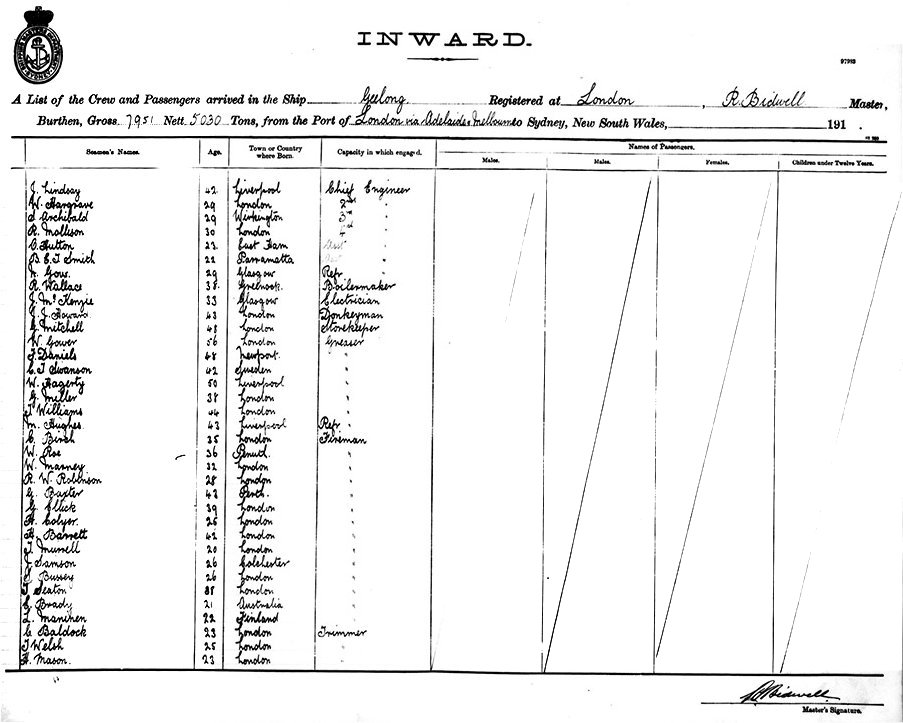 INWARD.
97993
A List of the Crew and Passengers arrived in the Ship Geelong Registered at London, R. Bidwell Master,
Burthen, Gross 7951 Nett 5030 Tons, from the Port of London via Adelaide & Melbourne to Sydney, New South Wales, 191 .
Seamen's Names. Age. Town or Country where Born. Capacity in which engaged. Names of Passengers.
Males. Males. Females. Children under Twelve Years.
J. Lindsay 42 Liverpool Chief Engineer
W. Hargrave 29 London 2nd "
S Archibald 29 Workington 3rd "
R. Mollison 30 London 4th "
C. Hutton 23 East Ham "
B E. J Smith 22 Parramatta "
N. Gow. 29 Glasgow Refr
R. Wallace 38 Greenock. Boilermaker
J. McKenzie 33 Glasgow Electrician
J. J. Howard 43 London Donkeyman
G. Mitchell 48 London Storekeeper
W. Gower 56 London Greaser
J. Daniels 48 Newport. "
C. J Swanson 42 Sweden "
W. Hagerty 50 Liverpool "
G. Miller 38 London "
J Williams 44 London "
M. Hughes 43 Liverpool Refr "
C. Birch 35 London Fireman
W. Roe 36 "
W. Marney 32 London "
R. W. Robinson 28 London "
G. Baxter 43 Perth. "
G. Ellick 39 London "
H. Colyer 25 London "
H. Barrett 42 London "
J. Murrell 20 London "
J Samson 26 Colchester "
J Bussey 26 London "
J Seaton 38 London "
G Brady 21 Australia "
L. Manihen 22 Finland "
C Baldock 23 London Trimmer
J Welsh 25 London "
H. Mason. 23 London "
R Bidwell
Master's Signature.